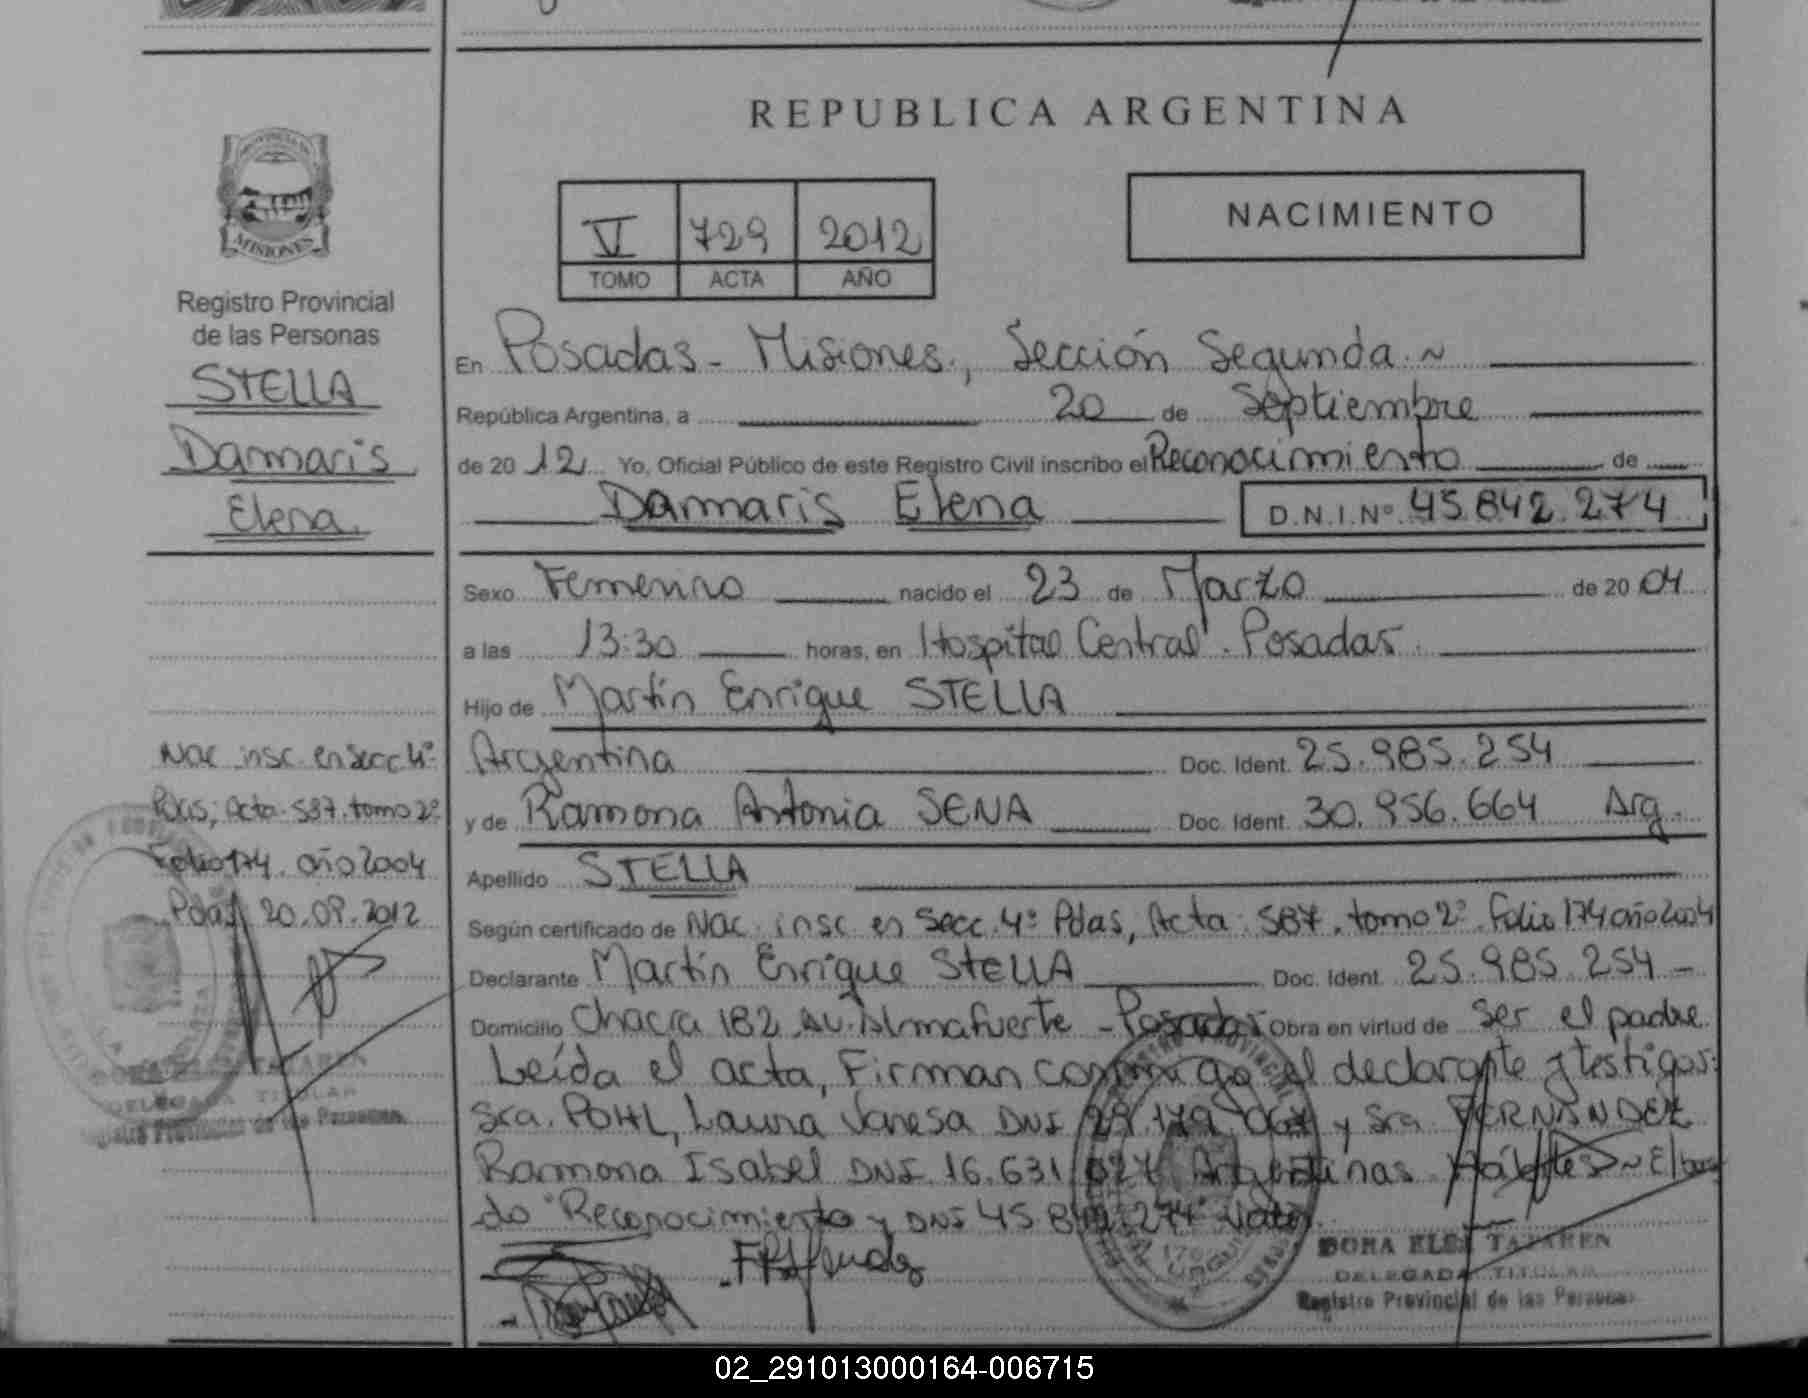 REPUBLICA ARGENTINA
NACIMIENTO
VI 729 2012
TOMO ACTA AÑO
MISIONES
Registro Provincial
de las Personas
STELLA
Damaris
Elena
En Posadas - Misiones., Sección Segunda.~
República Argentina, a 20 de Septiembre
de 20 12 Yo, Oficial Público de este Registro Civil inscribo el Reconocimiento de
Damaris Elena D.N.I.Nº 45.842.274
Sexo Femenino nacido el 23 de Marzo de 20 04
a las 13:30 horas, en Hospital Central. Posadas.
Hijo de Martín Enrique STELLA
Argentina Doc. Ident. 25.985.254
y de Ramona Antonia SENA Doc. Ident. 30.956.664 Arg.
Apellido STELLA
Según certificado de Nac. insc en Secc. 4º Pdas, Acta: 587. tomo 2º. Folio 174 año 2004
Declarante Martín Enrique STELLA Doc. Ident. 25.985.254 -
Domicilio Chacra 182 Av. Almafuerte - Posadas Obra en virtud de Ser el padre
Leída el acta, Firman conmigo el declarante y testigos:
Sra. POHL, Laura Vanesa DNI 29.179.067 y Sra. FERNANDEZ
Ramona Isabel DNI 16.631.027 Argentinas Hábiles ~ El
do "Reconocimiento y DNI 45.842.274" Vale.
Nac. insc. en Secc 4º
Pdas, Acta. 587. tomo 2º
Folio 174. año 2004
Pdas, 20.09.2012
DORA ELSA TAVAREN
DELEGADA TITULAR
Registro Provincial de las Personas
DELEGADA TITULAR
Registro Provincial de las Personas
02_291013000164-006715